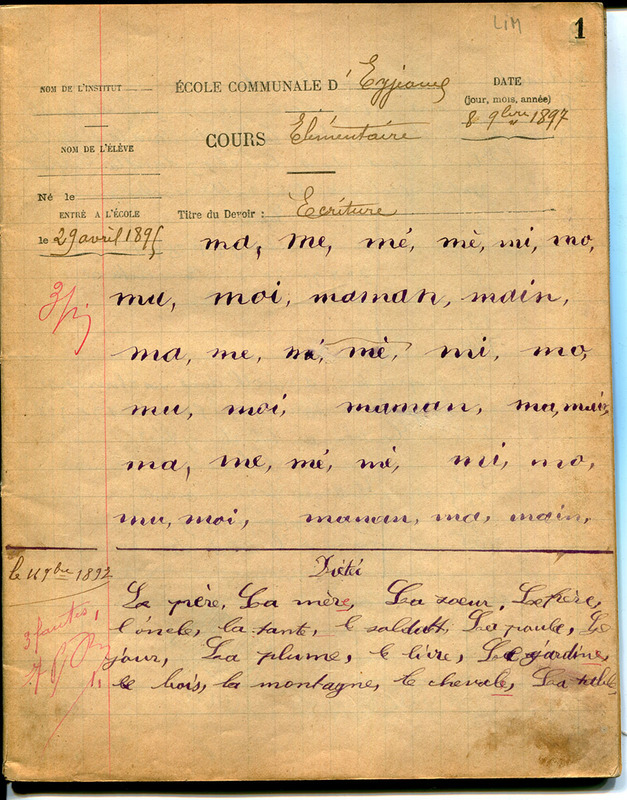 LIM
1
NOM DE L'INSTITUT
ÉCOLE COMMUNALE D' Eyjeaux
DATE
(jour, mois, année)
8 9bre 1897
COURS Élémentaire
NOM DE L'ÉLÈVE
Né le
ENTRÉ A L'ÉCOLE
Titre du Devoir : Ecriture
le 29 avril 1895
ma, me, mé, mè, mi, mo,
mu, moi, maman, main,
ma, me, mé, mè, mi, mo,
mu, moi, maman, ma, main,
ma, me, mé, mè, mi, mo,
mu, moi, maman, ma, main,
le 11 9bre 1897
Le père, La mère, La soeur, Le frère,
l'oncle, la tante, le soldat, La poule, Le
3 fautes,
jour, La plume, le livre, Le jardine,
le bois, la montagne, le chevale, La table